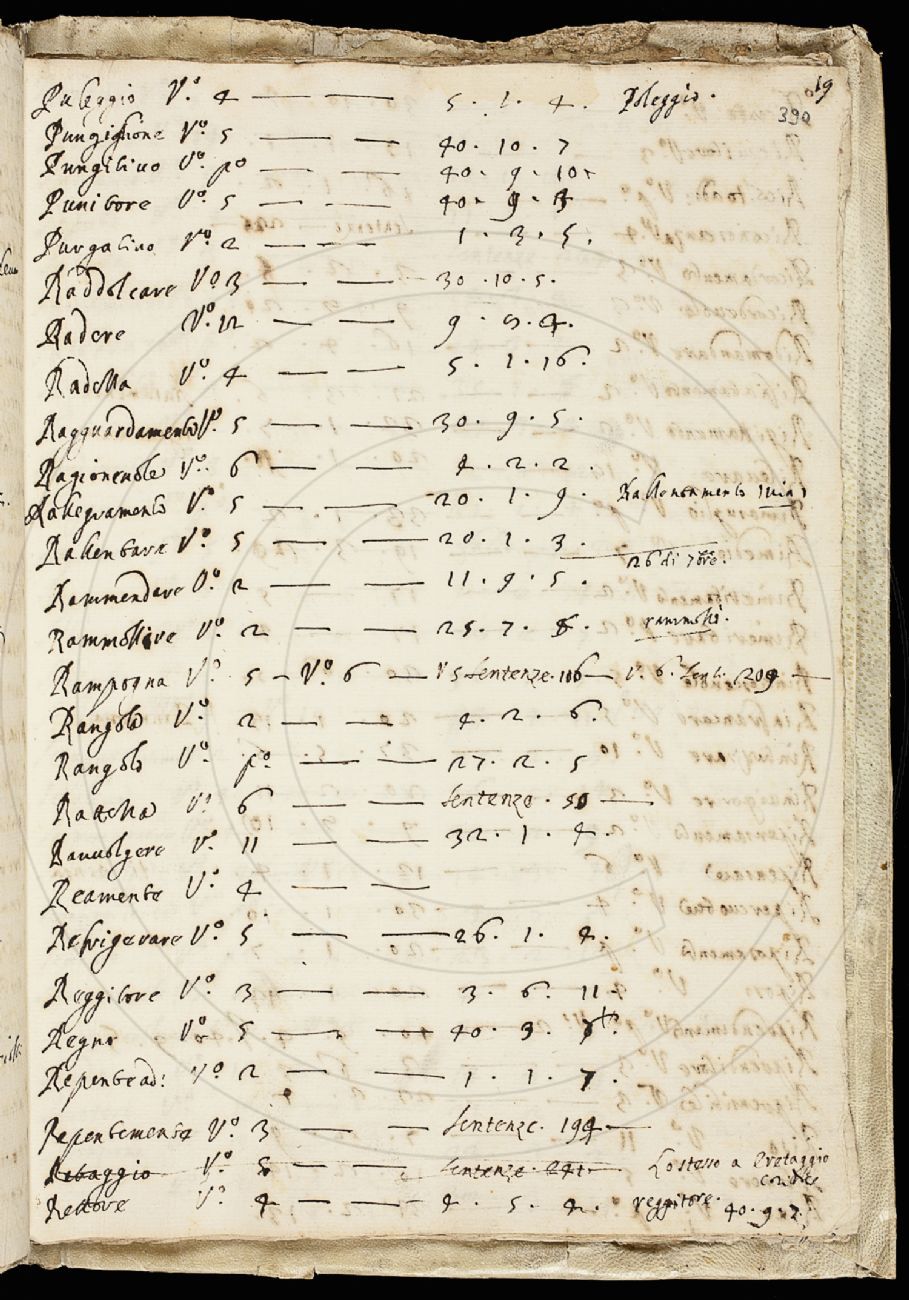 19
390
Puleggio V.º 4 — — 5 . 1 . 4 . Poleggio .
Pungiglione V.º 5 — — 40 . 10 . 7
Pungitivo V.º pº — — 40 . 9 . 10
Punitore V.º 5 — — 40 . 9 . 3
Purgativo V.º 2 — — 1 . 3 . 5 .
Raddolcare V.º 3 — — 30 . 10 . 5 .
Radere V.º 12 — — 9 . 9 . 4 .
Radetta V.º 4 — — 5 . 1 . 16 .
Ragguardamento V.º 5 — — 30 . 9 . 5 .
Ragionevole V.º 6 — — 4 . 2 . 2 .
Rallegramento V.º 5 — — 20 . 1 . 9 . Rallentamento
Rallentare V.º 5 — — 20 . 1 . 3 .
26 di 7bre .
Rammendare V.º 2 — — 11 . 9 . 5 .
Rammollire V.º 2 — — 25 . 7 . 8 . rammolli .
Rampogna V.º 5 — V.º 6 — V 5 Sentenze . 106 — V. 6 . Sent. 209 —
Rangolo V.º 2 — — 4 . 2 . 6 .
Rangolo V.º pº — — 27 . 2 . 5
Rattella V.º 6 — — Sentenze . 50 —
Ravvolgere V.º 11 — — 32 . 1 . 4 .
Reamente V.º 4 — —
Refrigerare V.º 5 — — 26 . 1 . 4 .
Reggitore V.º 3 — — 3 . 6 . 11 .
Regno V.º 5 — — 40 . 3 .
Repente ad : V.º 2 — — 1 . 1 . 7 .
Repentemente V.º 3 — — Sentenze . 194 —
Retaggio V.º 5 — — Sentenze . 241 — Lo stesso a Eretaggio
Rettore V.º 4 — — 4 . 5 . 4 . reggitore . 40 . 9 . 2 .